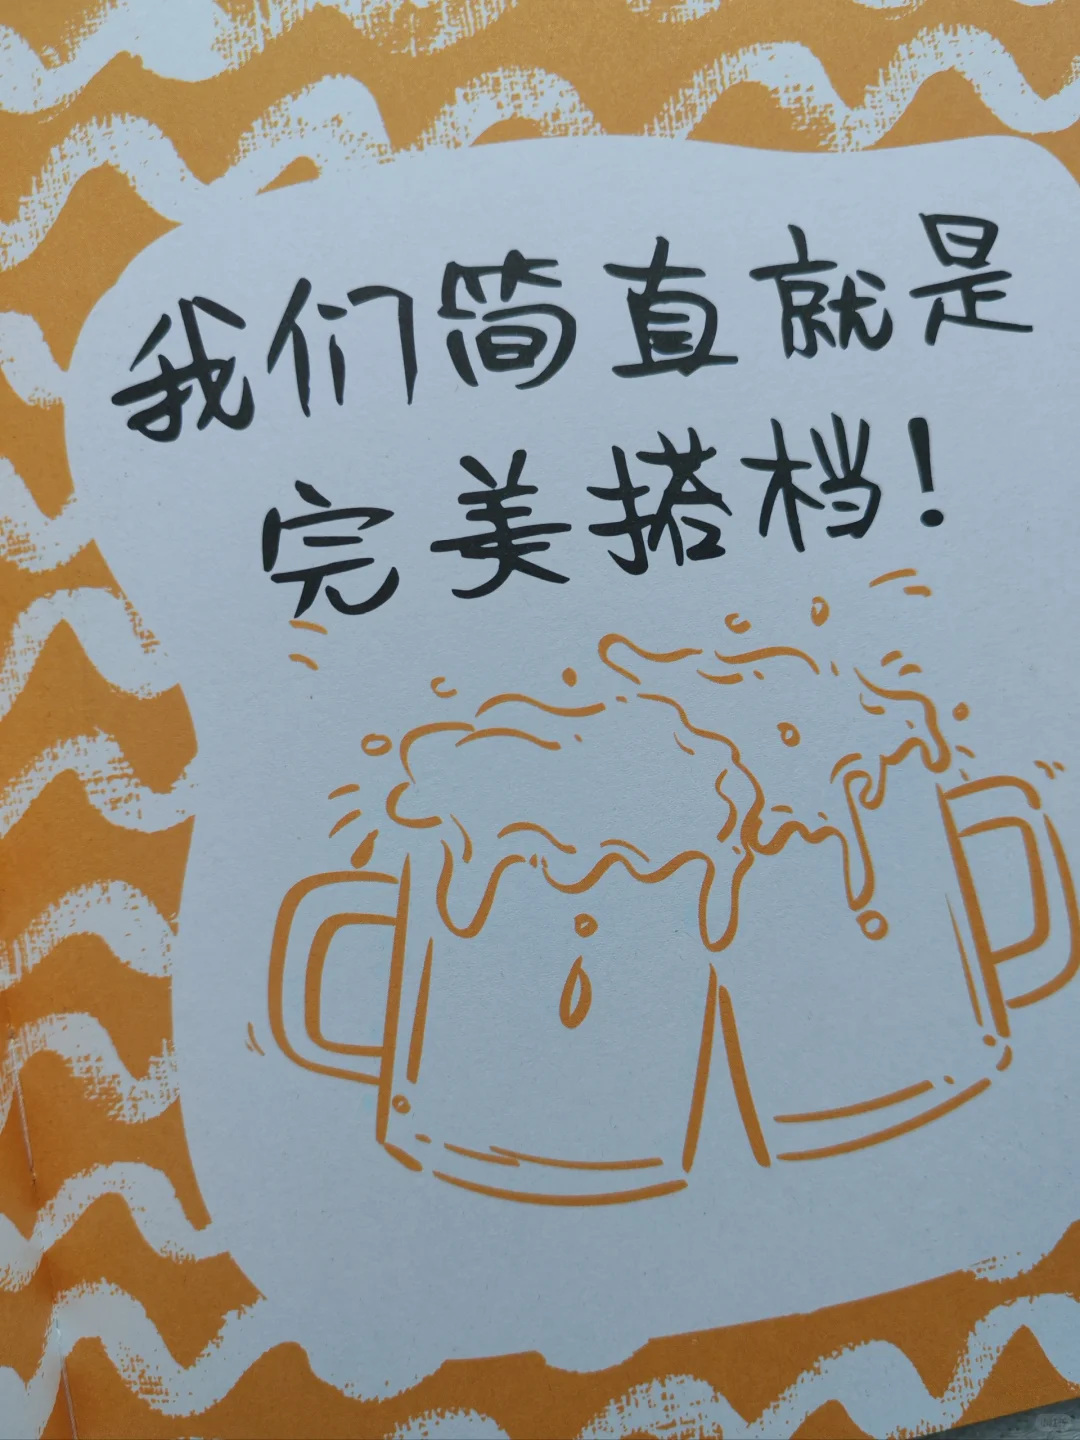 我们简直就是
完美搭档！